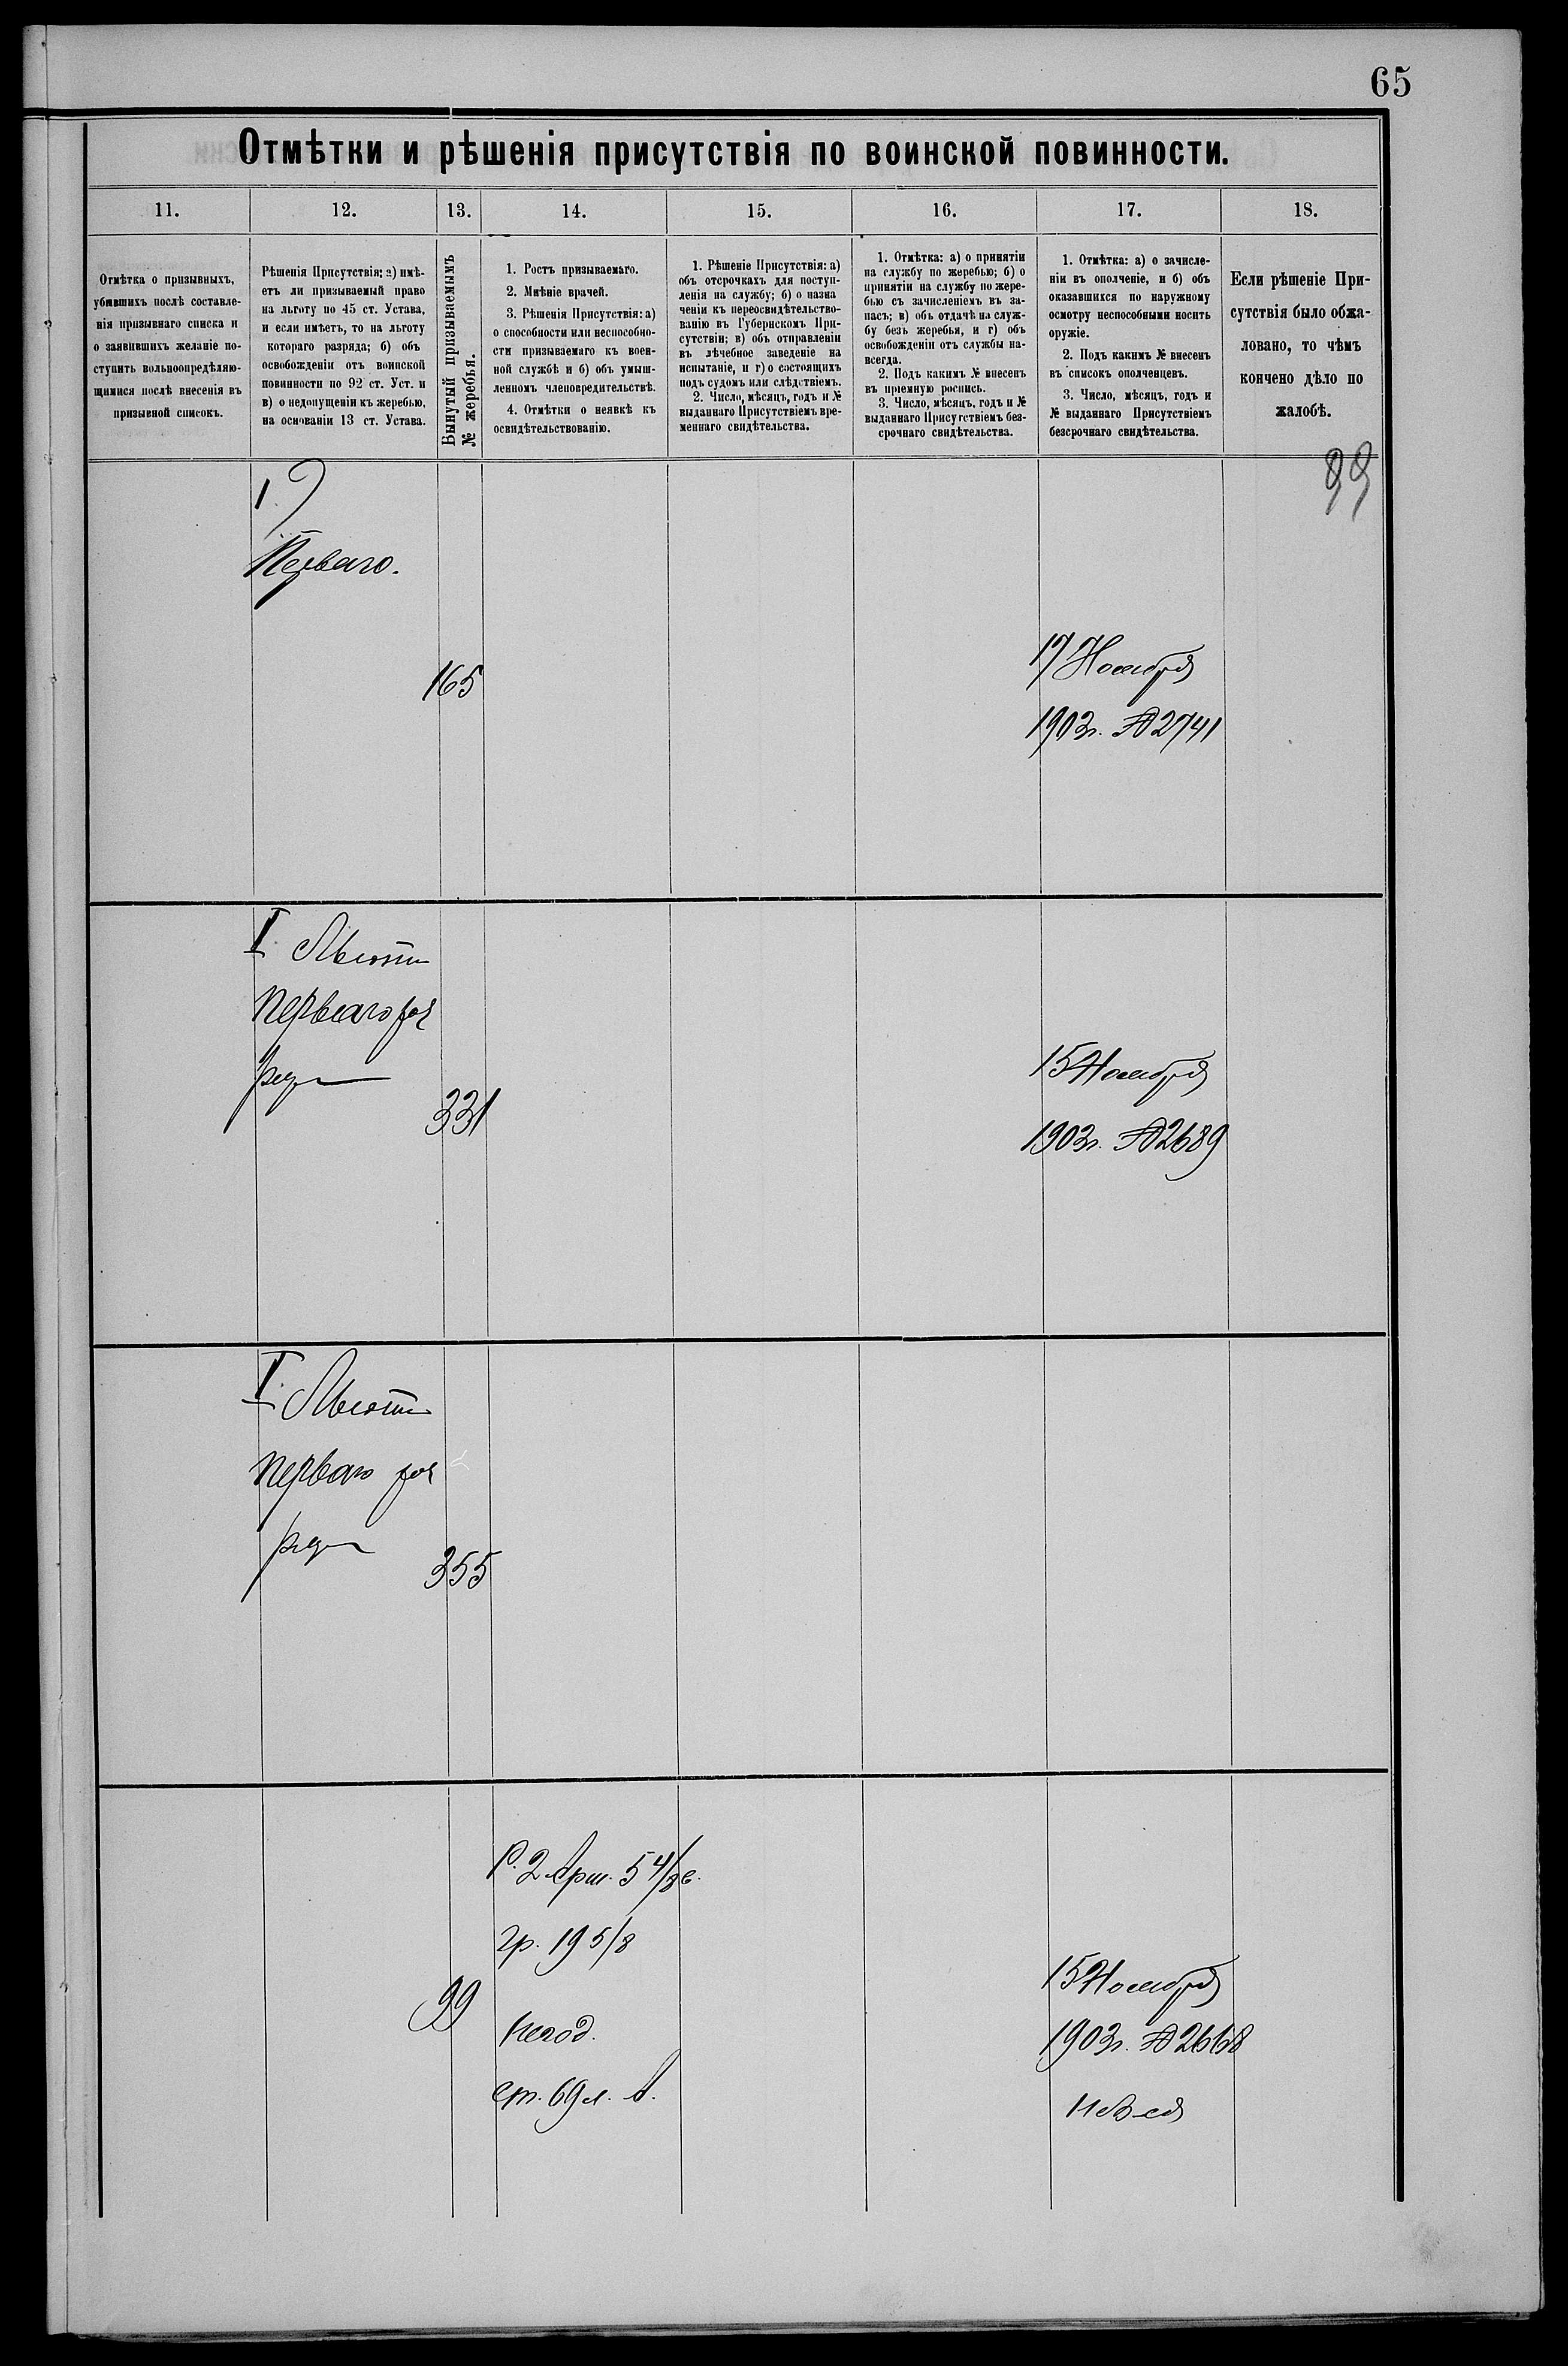 65
Отмѣтки и рѣшенія присутствія по воинской повинности.
11.
12.
13.
14.
15.
16.
17.
18.
Отмѣтка о призывныхъ,
убывшихъ послѣ составле-
нія призывнаго списка и
о заявившихъ желаніе по-
ступить вольноопредѣляю-
щимися послѣ внесенія въ
призывной списокъ.
Рѣшенія Присутствія: а) имѣ-
етъ ли призываемый право
на льготу по 45 ст. Устава,
и если имѣетъ, то на льготу
котораго разряда; б) объ
освобожденіи отъ воинской
повинности по 92 ст. Уст. и
в) о недопущеніи къ жеребью,
на основаніи 13 ст. Устава.
Вынутый призываемымъ
№ жеребья.
1. Ростъ призываемаго.
2. Мнѣніе врачей.
3. Рѣшенія Присутствія: а)
о способности или неспособно-
сти призываемаго къ воен-
ной службѣ и б) объ умыш-
ленномъ членовредительствѣ.
4. Отмѣтки о неявкѣ къ
освидѣтельствованію.
1. Рѣшеніе Присутствія: а)
объ отсрочкахъ для поступ-
ленія на службу; б) о назна
ченіи къ переосвидѣтельство-
ванію въ Губернскомъ При-
сутствіи; в) объ отправленіи
въ лѣчебное заведеніе на
испытаніе, и г) о состоящихъ
подъ судомъ или слѣдствіемъ.
2. Число, мѣсяцъ, годъ и №
выданнаго Присутствіемъ вре-
меннаго свидѣтельства.
1. Отмѣтка: а) о принятіи
на службу по жеребью; б) о
принятіи на службу по жере-
бью съ зачисленіемъ въ за-
пасъ; в) объ отдачѣ на служ-
бу безъ жеребья, и г) объ
освобожденіи отъ службы на-
всегда.
2. Подъ какимъ № внесенъ
въ пріемную роспись.
3. Число, мѣсяцъ, годъ и №
выданнаго Присутствіемъ без-
срочнаго свидѣтельства.
1. Отмѣтка: а) о зачисле-
ніи въ ополченіе, и б) объ
оказавшихся по наружному
осмотру неспособными носить
оружіе.
2. Подъ какимъ № внесенъ
въ списокъ ополченцевъ.
3. Число, мѣсяцъ, годъ и
№ выданнаго Присутствіемъ
безсрочнаго свидѣтельства.
Если рѣшеніе При-
сутствія было обжа-
ловано, то чѣмъ
кончено дѣло по
жалобѣ.
1
Перваго.
165
17 Ноября
1903г. № 2741
I Льготы
перваго раз
ряда
331
15 Ноября
1903г. № 2689
I Льготы
перваго раз
ряда
355
Р. 2 Арш. 5 4/8 в.
гр. 19 5/8
негод.
ст. 69 л. А.
99
15 Ноября
1903г. № 2668